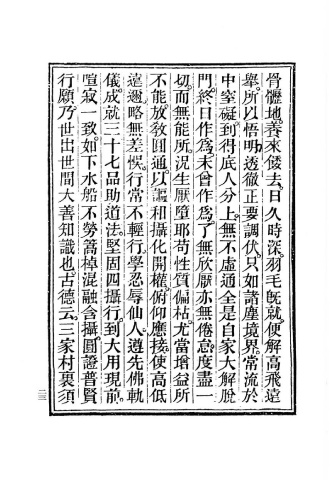 骨髓地。養來倐去。日久時深。羽毛旣就。便解高飛遠
舉。所以悟明透徹。正要調伏。只如諸塵境界。常流於
中窒礙。到得底人分上。無不虛通。全是自家大解脫
門。終日作爲。未曾作爲。了無欣厭。亦無倦怠。度盡一
切。而無能所。況生厭墮耶。苟性質偏枯。尤當增益所
不能。放敎圓通。以謳和攝化。開權俯仰應接。使高低
遠邇。略無差悞。行常不輕行。學忍辱仙人。遵先佛軌
儀。成就三十七品助道法。堅固四攝行。到大用現前。
喧寂一致。如下水船。不勞蒿棹。混融含攝。圓證普賢
行願。乃世出世間大善知識也。古德云。三家村裏須